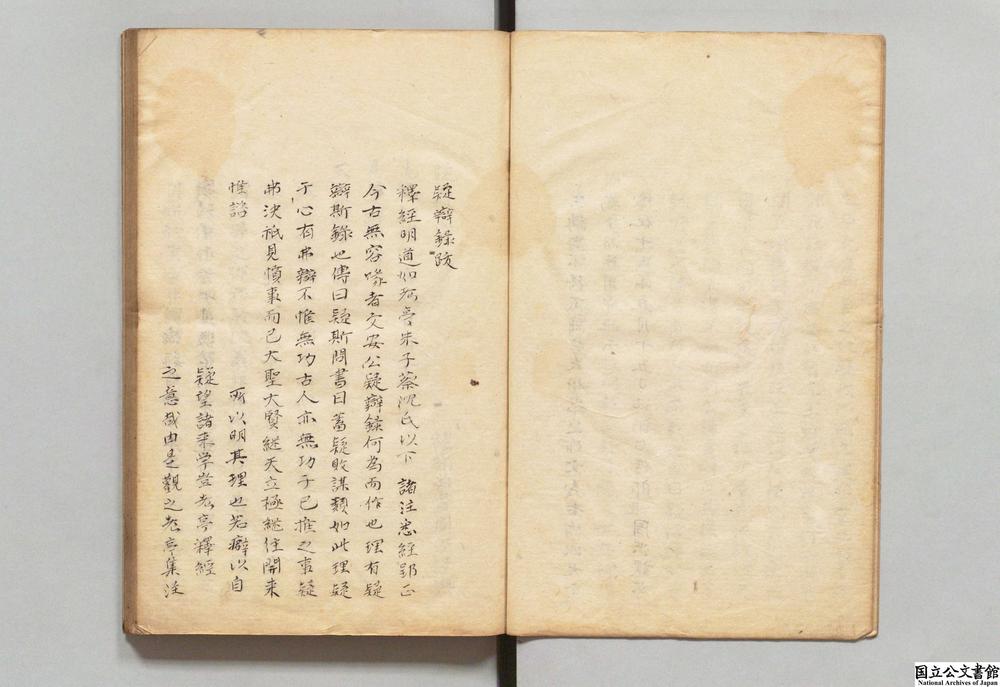 疑辯錄跋
釋經明道如考亭朱子蔡沈氏以下諸注悉經郢正
今古無容喙者文安公疑辯錄何為而作也理有疑
辯斯錄也傳曰疑斯問書曰蓄疑敗謀類如此理疑
于心有弗辯不惟無功古人亦無功于己推之事疑
弗決祇見憤事而已大聖大賢継天立極継往開来
惟諸
所以明其理也若癖以自
疑望諸来学豈考亭釋經
之意哉由是觀之考亭集注
国立公文書館
National Archives of Japan